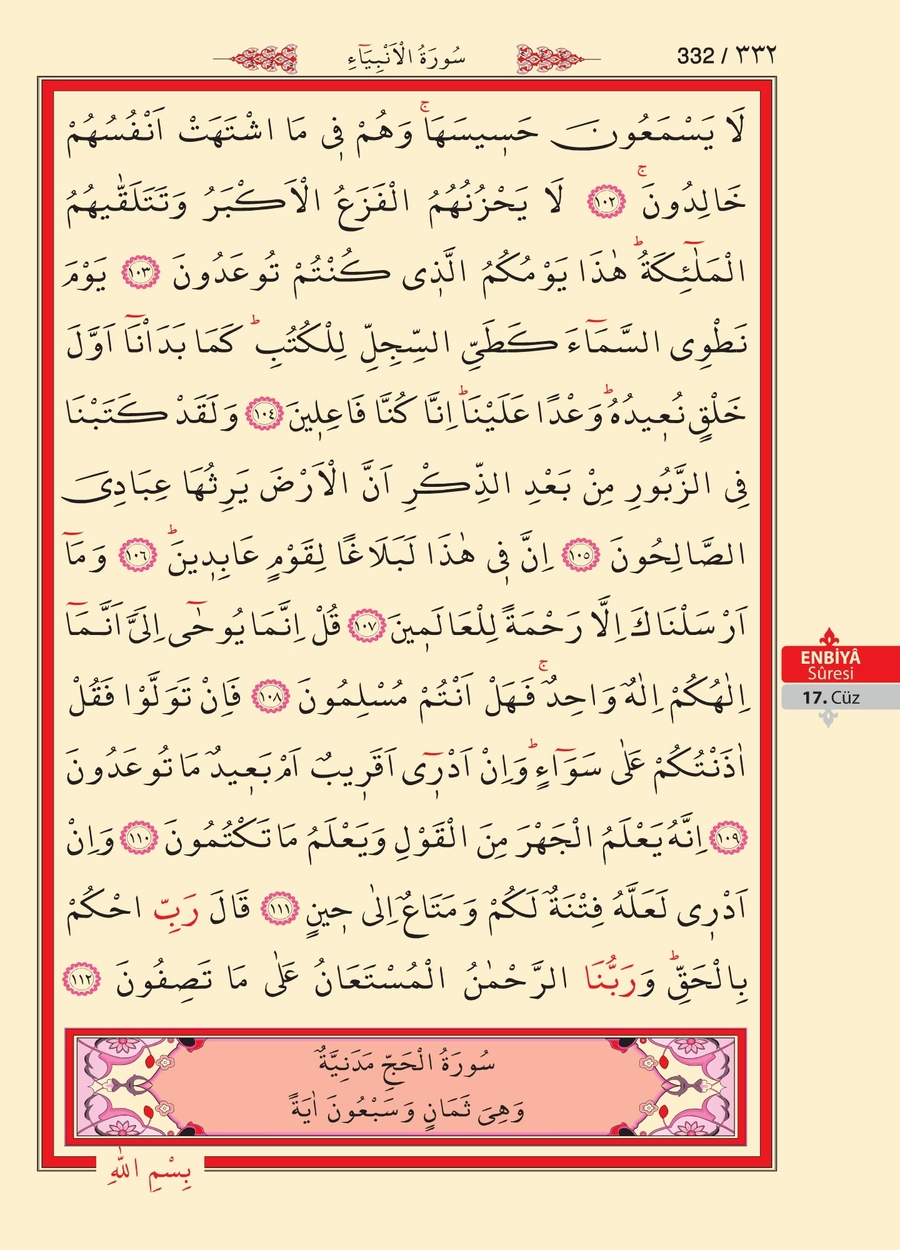 سُورَةُ الْاَنْبِيَٓاءِ
332 / ٣٣٢
لَا يَسْمَعُونَ حَس۪يسَهَاۚ وَهُمْ ف۪ي مَا اشْتَهَتْ اَنْفُسُهُمْ
خَالِدُونَۚ ﴿١٠٢﴾ لَا يَحْزُنُهُمُ الْفَزَعُ الْاَكْبَرُ وَتَتَلَقّٰيهُمُ
الْمَلٰٓئِكَةُۜ هٰذَا يَوْمُكُمُ الَّذ۪ي كُنْتُمْ تُوعَدُونَ ﴿١٠٣﴾ يَوْمَ
نَطْوِي السَّمَٓاءَ كَطَيِّ السِّجِلِّ لِلْكُتُبِۜ كَمَا بَدَأْنَٓا اَوَّلَ
خَلْقٍ نُع۪يدُهُۜ وَعْدًا عَلَيْنَاۜ اِنَّا كُنَّا فَاعِل۪ينَ ﴿١٠٤﴾ وَلَقَدْ كَتَبْنَا
فِي الزَّبُورِ مِنْ بَعْدِ الذِّكْرِ اَنَّ الْاَرْضَ يَرِثُهَا عِبَادِيَ
الصَّالِحُونَ ﴿١٠٥﴾ اِنَّ ف۪ي هٰذَا لَبَلَاغًا لِقَوْمٍ عَابِد۪ينَۜ ﴿١٠٦﴾ وَمَٓا
اَرْسَلْنَاكَ اِلَّا رَحْمَةً لِلْعَالَم۪ينَ ﴿١٠٧﴾ قُلْ اِنَّمَا يُوحٰٓى اِلَيَّ اَنَّمَٓا
اِلٰهُكُمْ اِلٰهٌ وَاحِدٌۚ فَهَلْ اَنْتُمْ مُسْلِمُونَ ﴿١٠٨﴾ فَاِنْ تَوَلَّوْا فَقُلْ
اٰذَنْتُكُمْ عَلٰى سَوَٓاءٍۜ وَاِنْ اَدْر۪ٓي اَقَر۪يبٌ اَمْ بَع۪يدٌ مَا تُوعَدُونَ
﴿١٠٩﴾ اِنَّهُ يَعْلَمُ الْجَهْرَ مِنَ الْقَوْلِ وَيَعْلَمُ مَا تَكْتُمُونَ ﴿١١٠﴾ وَاِنْ
اَدْر۪ي لَعَلَّهُ فِتْنَةٌ لَكُمْ وَمَتَاعٌ اِلٰى ح۪ينٍ ﴿١١١﴾ قَالَ رَبِّ احْكُمْ
بِالْحَقِّۜ وَرَبُّنَا الرَّحْمٰنُ الْمُسْتَعَانُ عَلٰى مَا تَصِفُونَ ﴿١١٢﴾
سُورَةُ الْحَجِّ مَدَنِيَّةٌ
وَهِيَ ثَمَانٍ وَسَبْعُونَ اٰيَةً
بِسْمِ اللّٰهِ
ENBİYÂ
Sûresi
17. Cüz